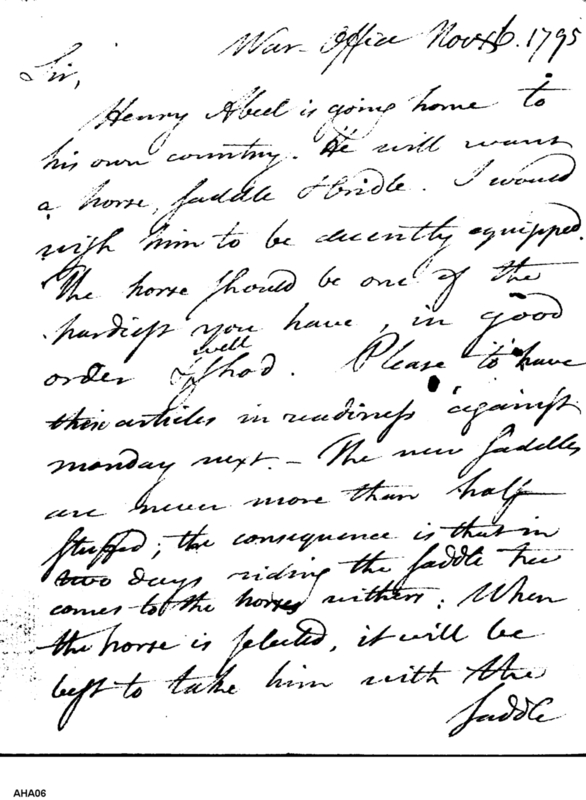 War-Office Nov. 6. 1795
Sir,
Henry Abeel is going home to
his own country. He will want
a horse, saddle & bridle. I would
wish him to be decently equipped.
The horse should be one of the
hardiest you have, in good
well
order & shod. Please to have
these articles in readiness against
monday next. – The new saddles
are never more than half
stuffed; the consequence is that in
two days riding the saddle tree
comes to the horses withers: When
the horse is selected, it will be
best to take him with the
saddle
AHA06